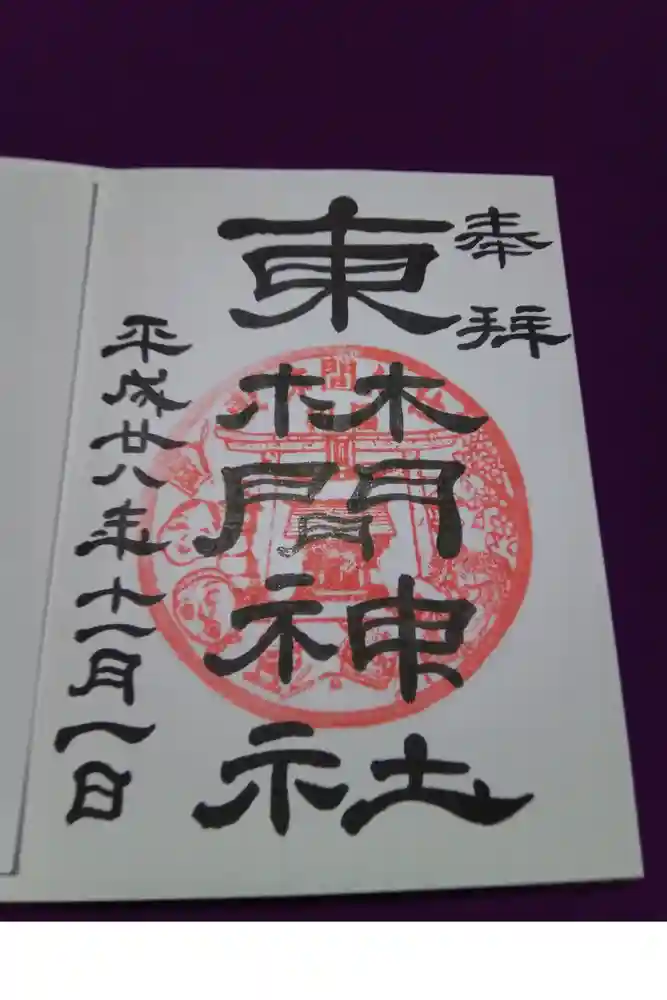 奉拝
東林間神社
平成廿八年十一月一日